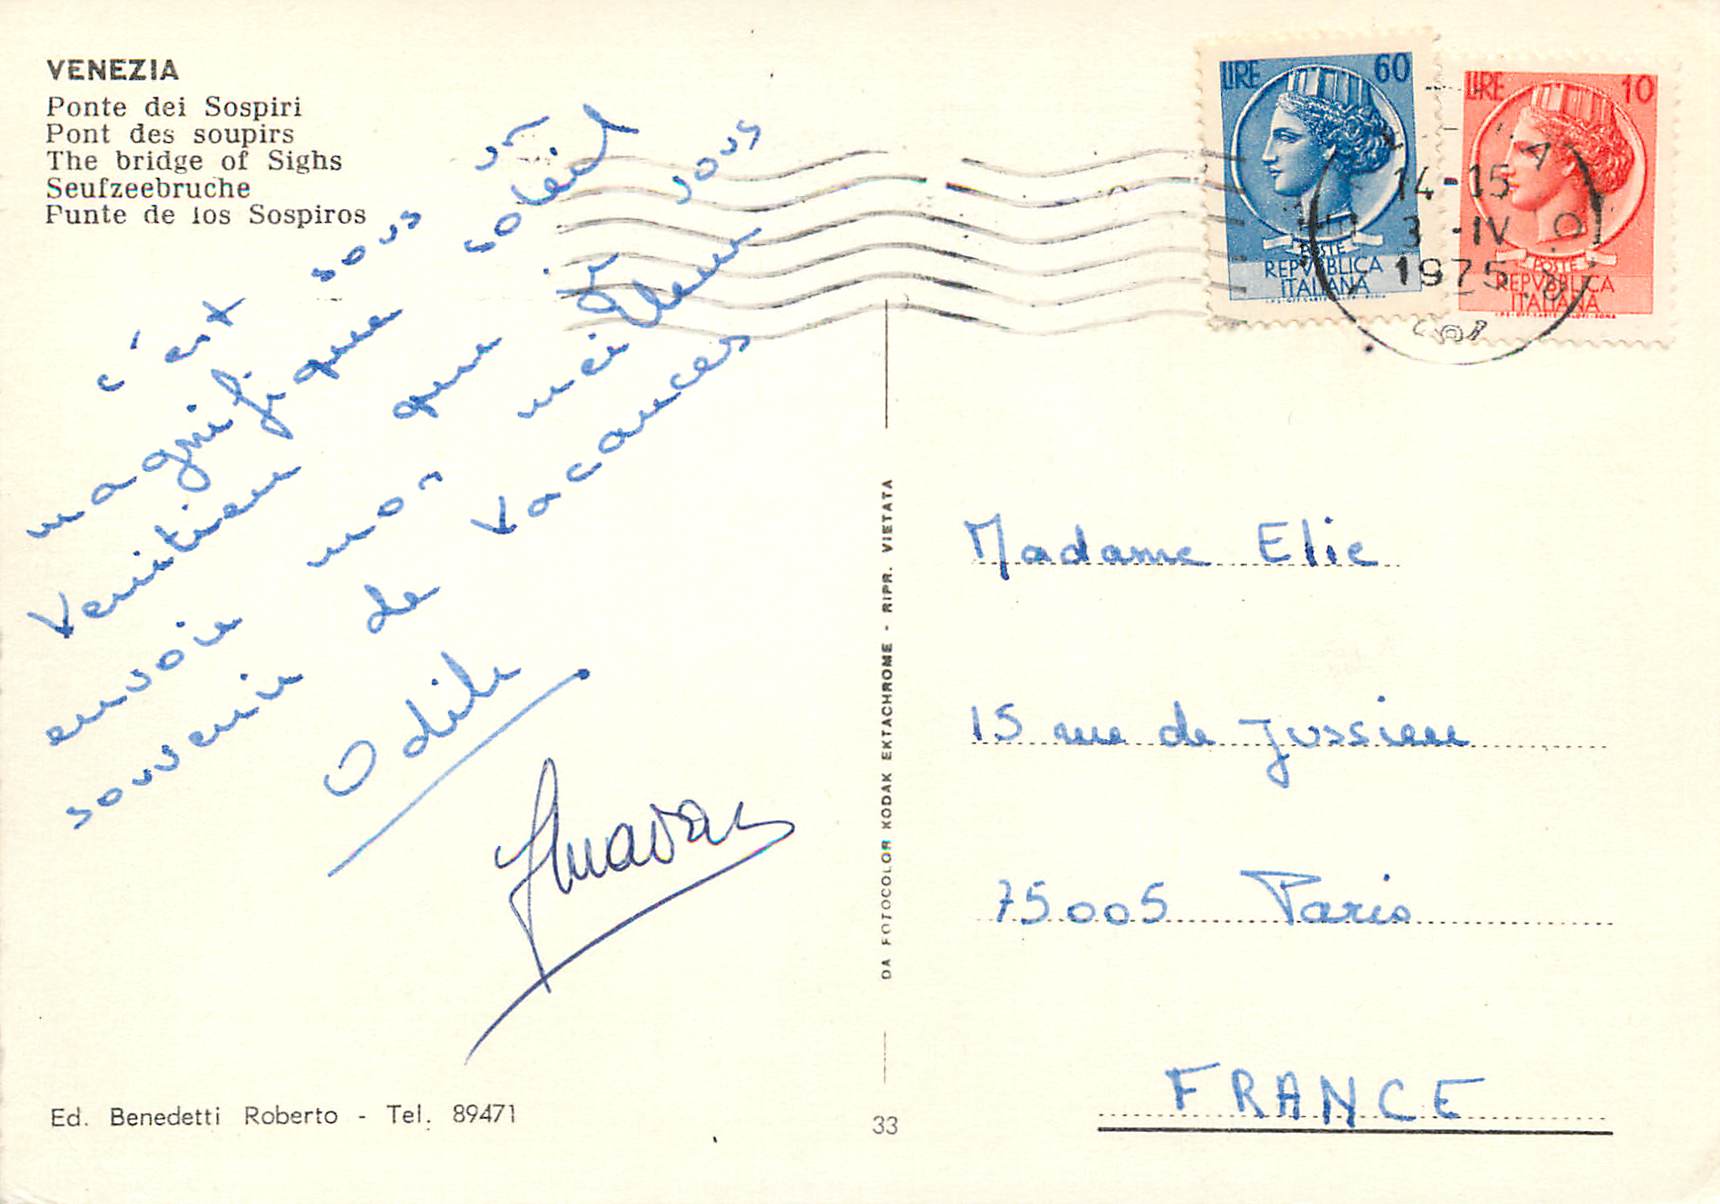 VENEZIA
Ponte dei Sospiri
Pont des soupirs
The bridge of Sighs
Seufzeebruche
Punte de los Sospiros
c'est sous un
magnifique soleil
Venitien que je vous
envoie mon meilleur
souvenir de vacances
Odile
LIRE 60
POSTE
REPVBBLICA
ITALIANA
LIRE 10
POSTE
REPVBBLICA
ITALIANA
14-15
3-IV
1975
DA FOTOCOLOR KODAK EKTACHROME - RIPR. VIETATA
Madame Elie
15 rue de Jussieu
75005 Paris
FRANCE
Ed. Benedetti Roberto - Tel. 89471
33